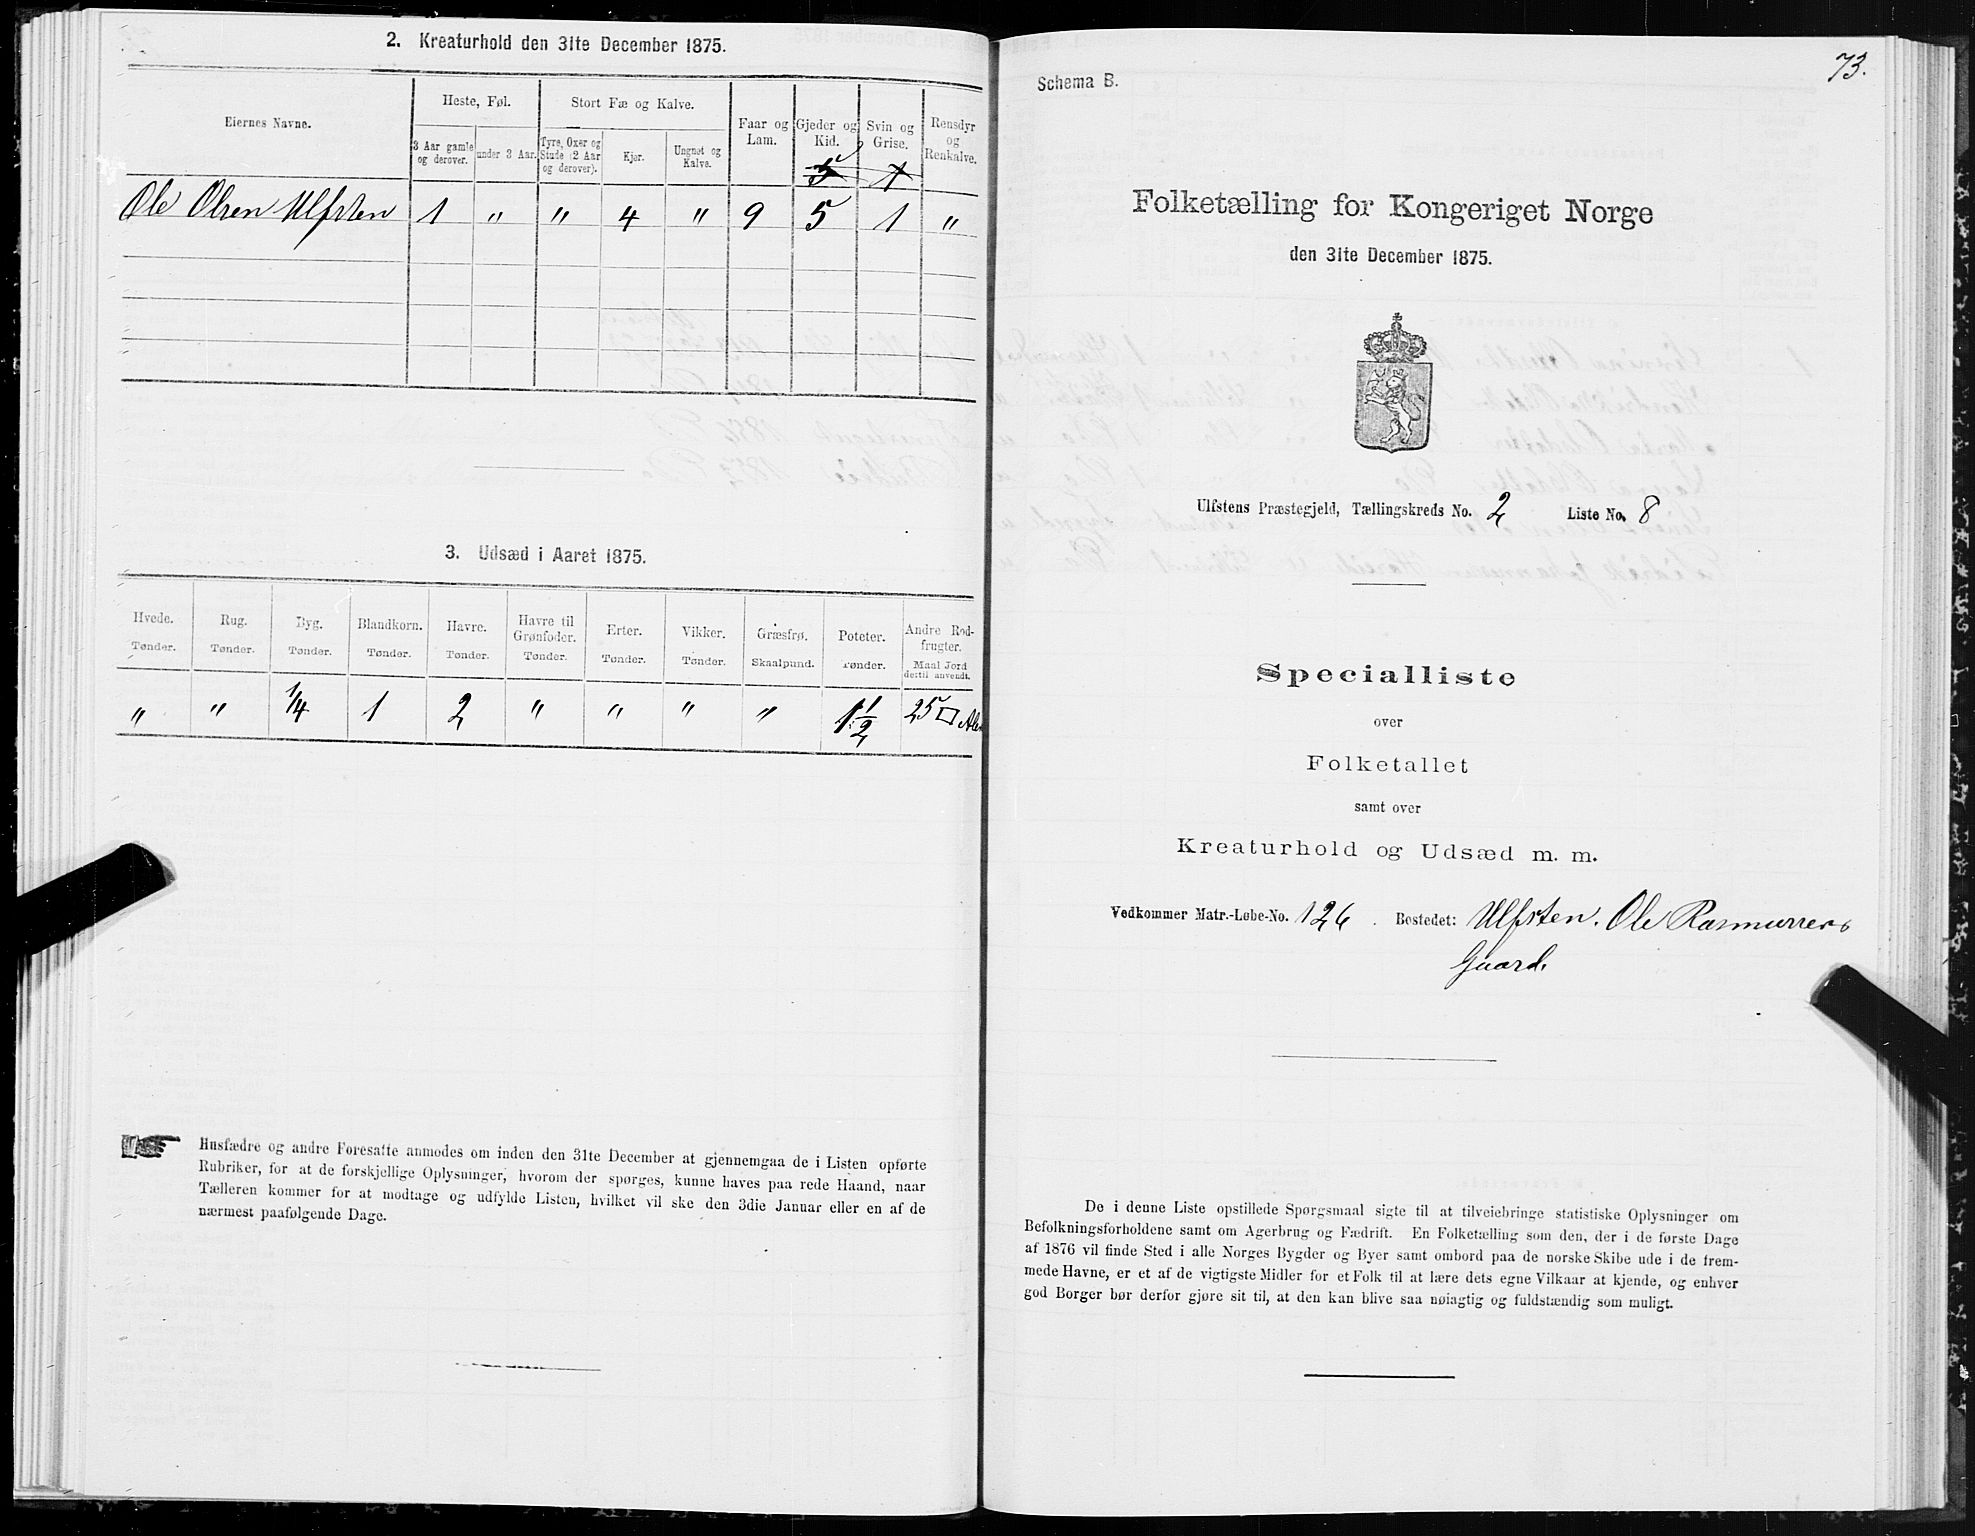 2. Kreaturhold den 31te December 1875.
Eiernes Navne.
Heste, Føl.
Stort Fæ og Kalve.
Faar og Lam.
Gjeder og Kid.
Svin og Grise.
Rensdyr og Renkalve.
3 Aar gamle og derover.
under 3 Aar.
Tyre, Oxer og Stude (2 Aar og derover).
Kjør.
Ungnøt og Kalve.
5 1
Ole Olsen Ulfsten 1 " " 4 " 9 5 1 "
3. Udsæd i Aaret 1875.
Hvede. Rug. Byg. Blandkorn. Havre. Havre til Grønfoder. Erter. Vikker. Græsfrø. Poteter. Andre Rodfrugter.
Tønder. Tønder. Tønder. Tønder. Tønder. Tønder. Tønder. Tønder. Skaalpund. Tønder. Maal Jord dertil anvendt.
" " 1/4 1 2 " " " " 1 1/2 25 □ Alen
Husfædre og andre Foresatte anmodes om inden den 31te December at gjennemgaa de i Listen opførte
Rubriker, for at de forskjellige Oplysninger, hvorom der spørges, kunne haves paa rede Haand, naar
Tælleren kommer for at modtage og udfylde Listen, hvilket vil ske den 3die Januar eller en af de
nærmest paafølgende Dage.
73.
Schema B.
Folketælling for Kongeriget Norge
den 31te December 1875.
Ulfstens Præstegjeld, Tællingskreds No. 2 Liste No. 8
Specialliste
over
Folketallet
samt over
Kreaturhold og Udsæd m. m.
Vedkommer Matr.-Løbe-No. 126. Bostedet: Ulfsten. Ole Rasmusses
Gaard.
De i denne Liste opstillede Spørgsmaal sigte til at tilveiebringe statistiske Oplysninger om
Befolkningsforholdene samt om Agerbrug og Fædrift. En Folketælling som den, der i de første Dage
af 1876 vil finde Sted i alle Norges Bygder og Byer samt ombord paa de norske Skibe ude i de frem-
mede Havne, er et af de vigtigste Midler for et Folk til at lære dets egne Vilkaar at kjende, og enhver
god Borger bør derfor gjøre sit til, at den kan blive saa nøiagtig og fuldstændig som muligt.